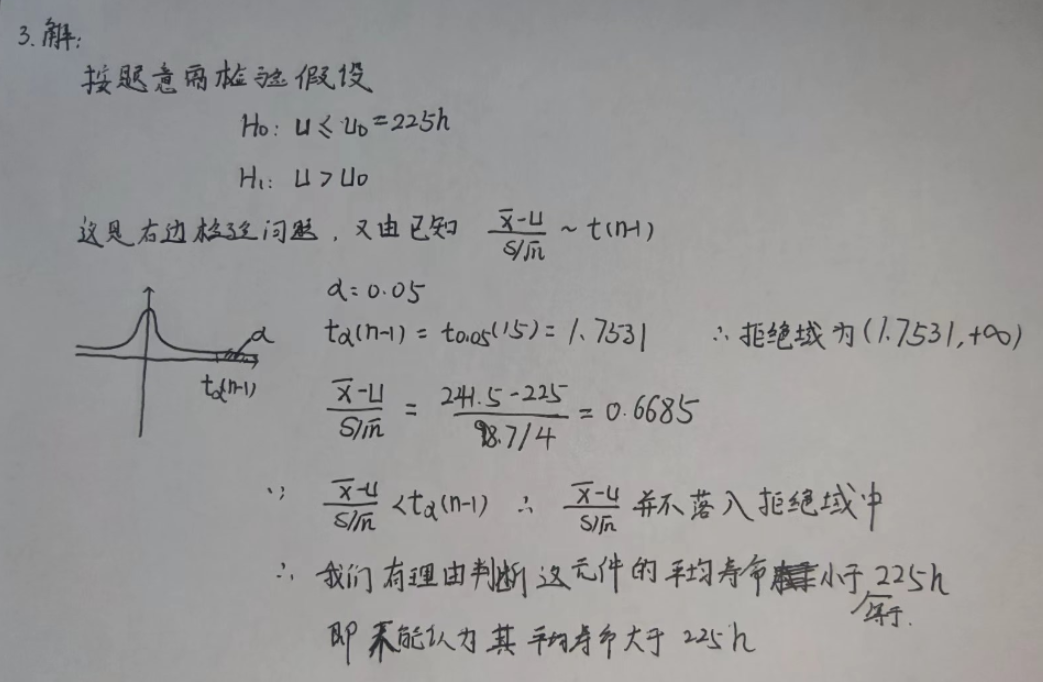 3.解:
按题意需检验假设
H₀: u ≤ u₀ = 225h
H₁: u > u₀
这是右边检验问题, 又由已知 (x̄-u)/(S/√n) ~ t(n-1)
α = 0.05
t_α(n-1) = t_0.05(15) = 1.7531 ∴ 拒绝域为(1.7531, +∞)
α
t_α(n-1)
(x̄-u)/(S/√n) = (241.5-225)/(98.7/4) = 0.6685
∵ (x̄-u)/(S/√n) < t_α(n-1) ∴ (x̄-u)/(S/√n) 并不落入拒绝域中
∴ 我们有理由判断这元件的平均寿命小于等于225h
即不能认为其平均寿命大于225h